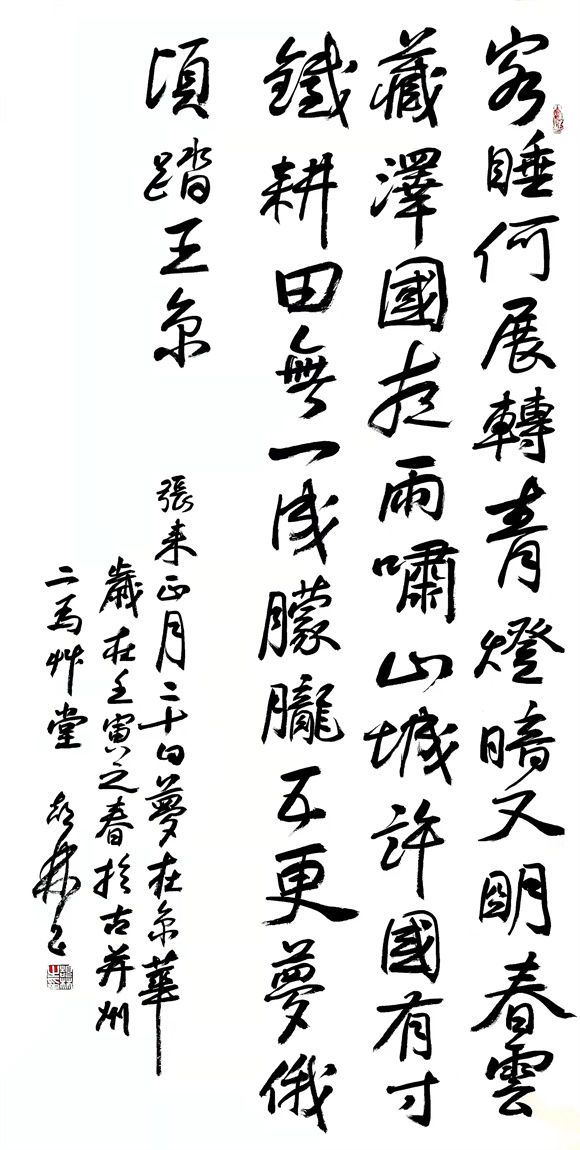 客睡何展轉青燈暗又明春雲
藏澤國夜雨嘯山城許國有寸
鐵耕田無一成朦朧五更夢俄
頃踏王京
張耒正月二十日夢在京華
歲在壬寅之春於古并州
二馬艸堂